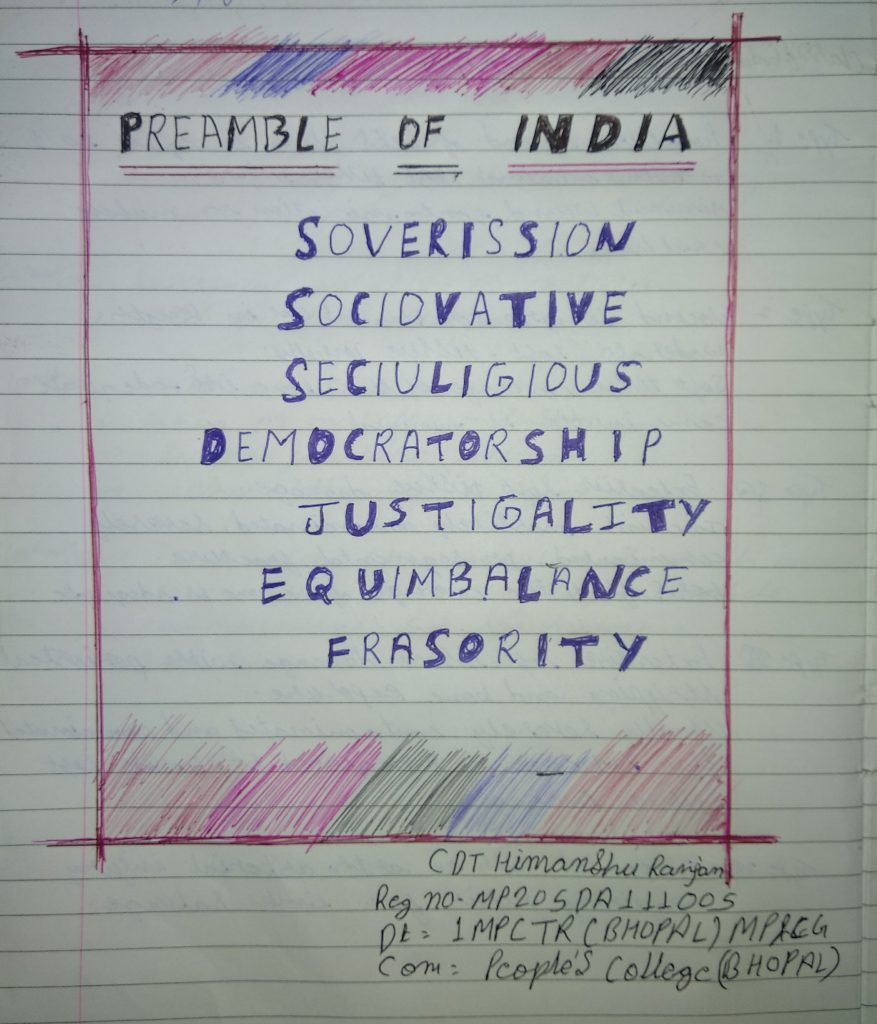 PREAMBLE OF INDIA
SOVERISSION
SOCIOVATIVE
SECIULIGIOUS
DEMOCRATORSHIP
JUSTIGALITY
EQUIMBALANCE
FRASORITY
CDT Himanshu Ranjan
Reg no- MP20SDA111005
Dt = 1MPCTR (BHOPAL)
Com = People's College (BHOPAL)